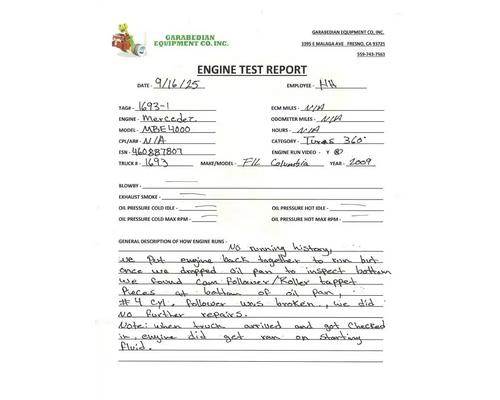 GARABEDIAN
EQUIPMENT CO. INC.
GARABEDIAN EQUIPMENT CO, INC.
3395 E MALAGA AVE FRESNO, CA 93725
559-743-7563
ENGINE TEST REPORT
DATE - 9/16/25 EMPLOYEE - HH
TAG# - 1693-1 ECM MILES - N/A
ENGINE - Mercedes. ODOMETER MILES - N/A
MODEL - MBE4000 HOURS - N/A
CPL/AR# - N/A CATEGORY - Turns 360°
ESN - 460887807 ENGINE RUN VIDEO - Y N
TRUCK # - 1693 MAKE/MODEL - F/L Columbia YEAR - 2009
BLOWBY -
EXHAUST SMOKE -
OIL PRESSURE COLD IDLE - OIL PRESSURE HOT IDLE -
OIL PRESSURE COLD MAX RPM - OIL PRESSURE HOT MAX RPM -
GENERAL DESCRIPTION OF HOW ENGINE RUNS: No running history,
we put engine back together to run but
once we dropped oil pan to inspect bottom
we found cam follower/Roller tappet
pieces at bottom of oil pan,
#4 cyl. follower was broken, we did
No further repairs.
Note: when truck arrived and got checked
in, engine did get ran on starting
fluid.